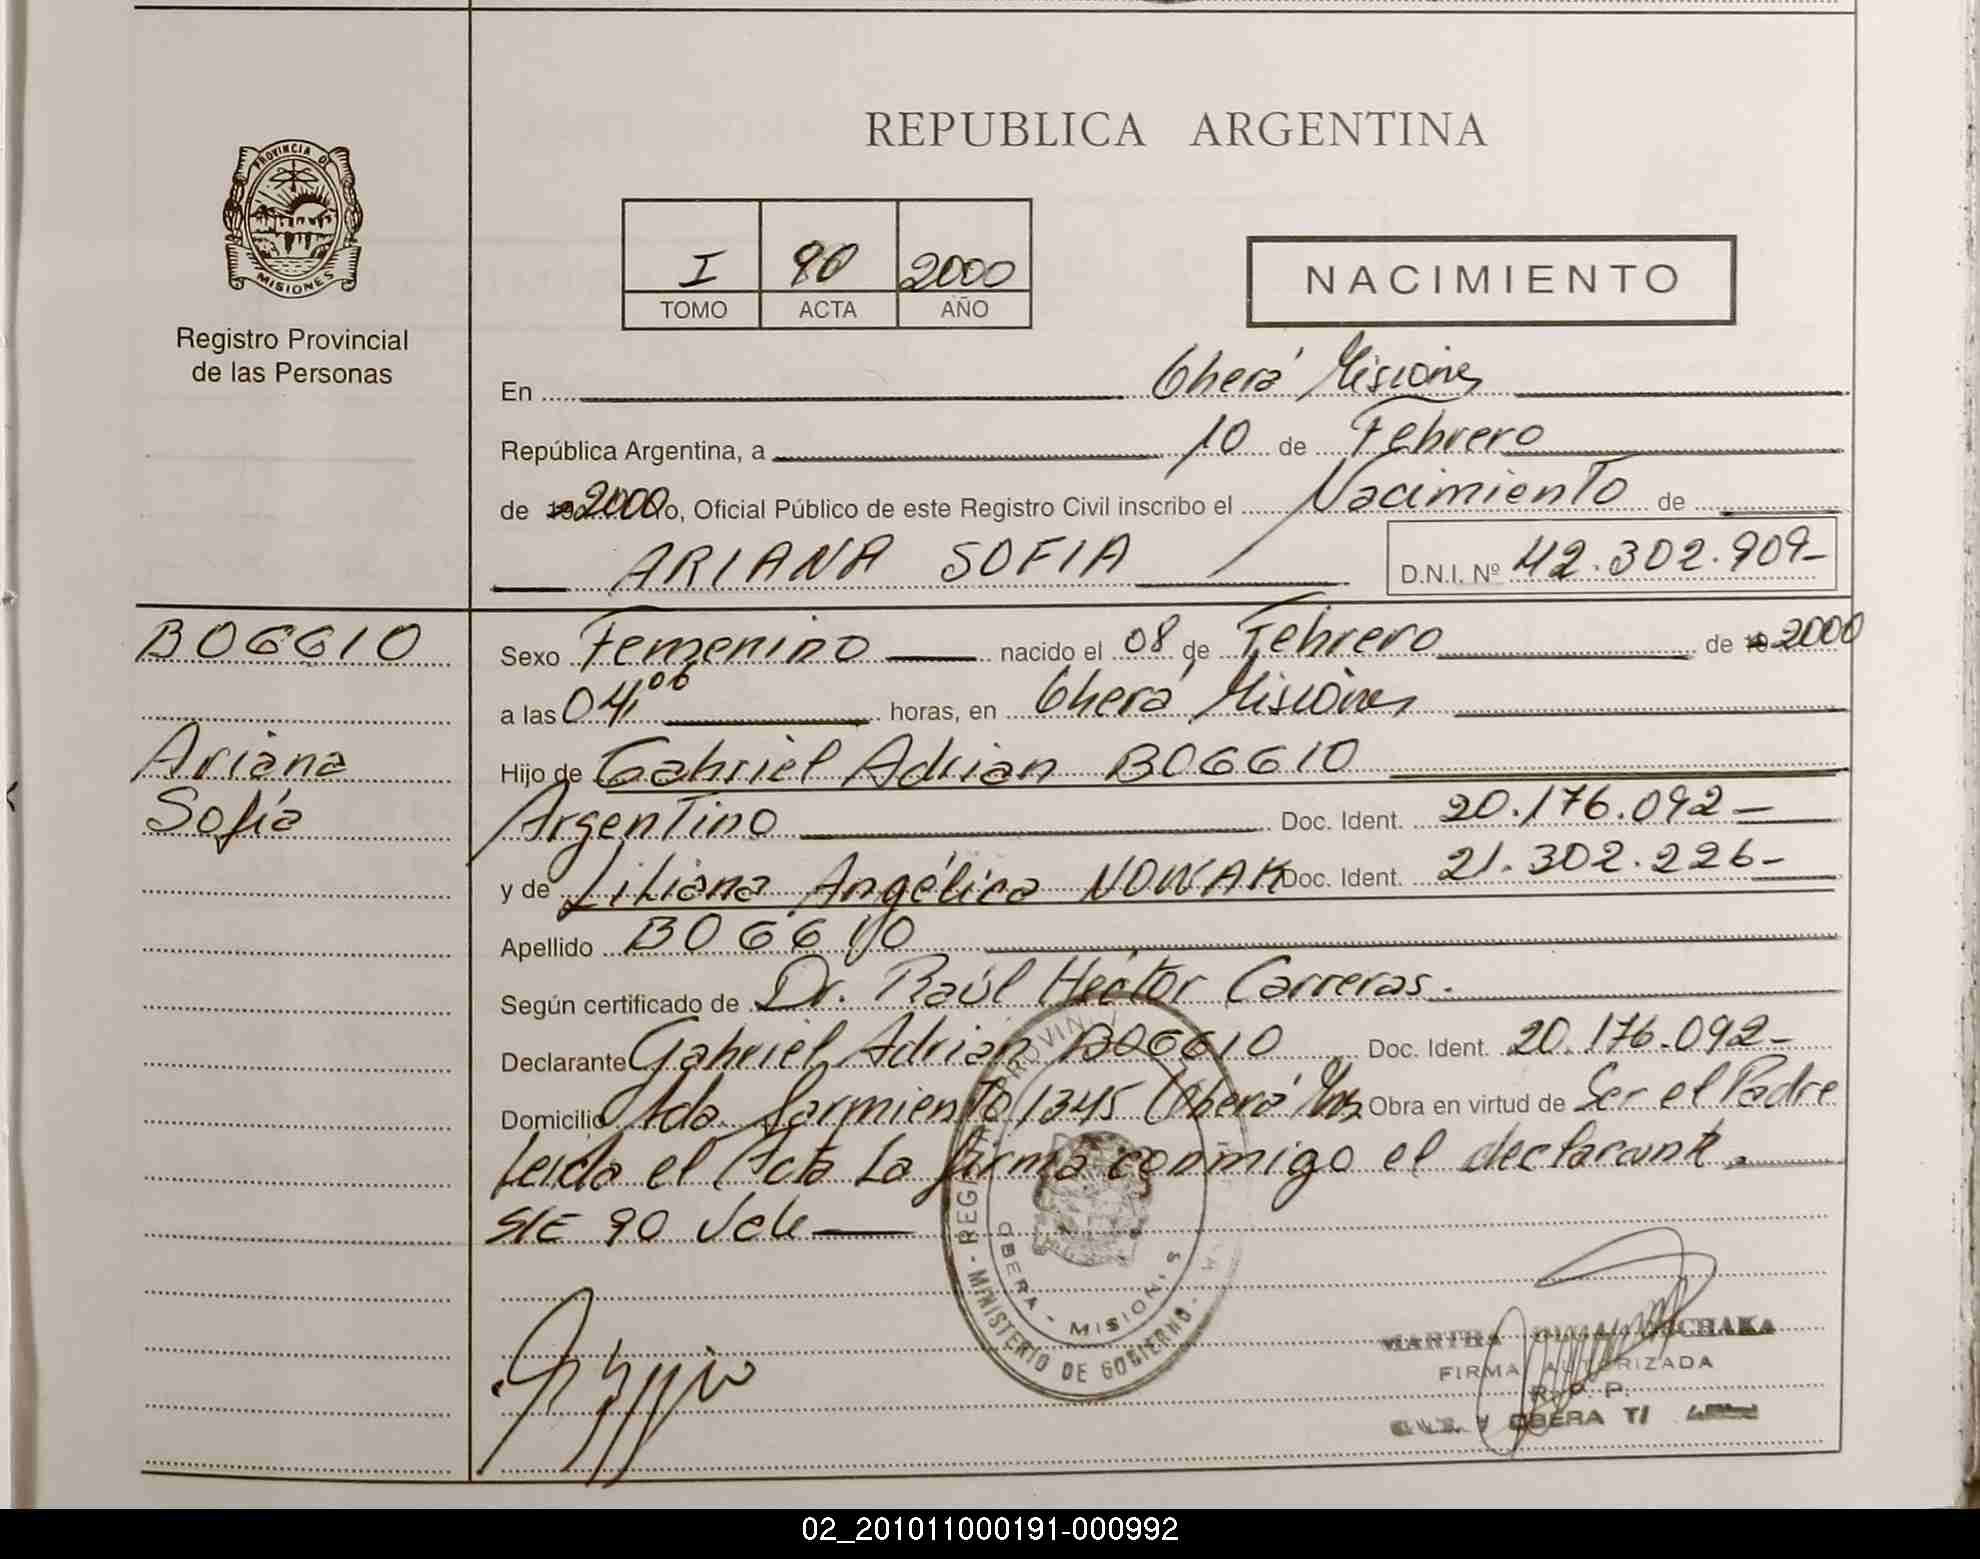 REPUBLICA ARGENTINA
PROVINCIA DE
MISIONES
Registro Provincial
de las Personas
I 90 2000
TOMO ACTA AÑO
NACIMIENTO
En Oberá Misiones
República Argentina, a 10 de Febrero
de 2000 o, Oficial Público de este Registro Civil inscribo el Nacimiento de
ARIANA SOFIA D.N.I. Nº 42.302.909-
BOGGIO
Ariana
Sofía
Sexo Femenino nacido el 08 de Febrero de 2000
a las 04,06 horas, en Oberá Misiones
Hijo de Gabriel Adrian BOGGIO
Argentino Doc. Ident. 20.176.092-
y de Liliana Angélica NOWAK Doc. Ident. 21.302.226-
Apellido BOGGIO
Según certificado de Dr. Raúl Héctor Carreras.
Declarante Gabriel Adrian BOGGIO Doc. Ident. 20.176.092-
Domicilio Avda. Sarmiento 1345 Oberá Mns Obra en virtud de Ser el Padre
Leida el Acta La firma conmigo el declarante.
S/E 90 Vale
OBERA - MISIONES
MINISTERIO DE GOBIERNO
MARTHA
FIRMA AUTORIZADA
R. P. P.
OBERA
02_201011000191-000992